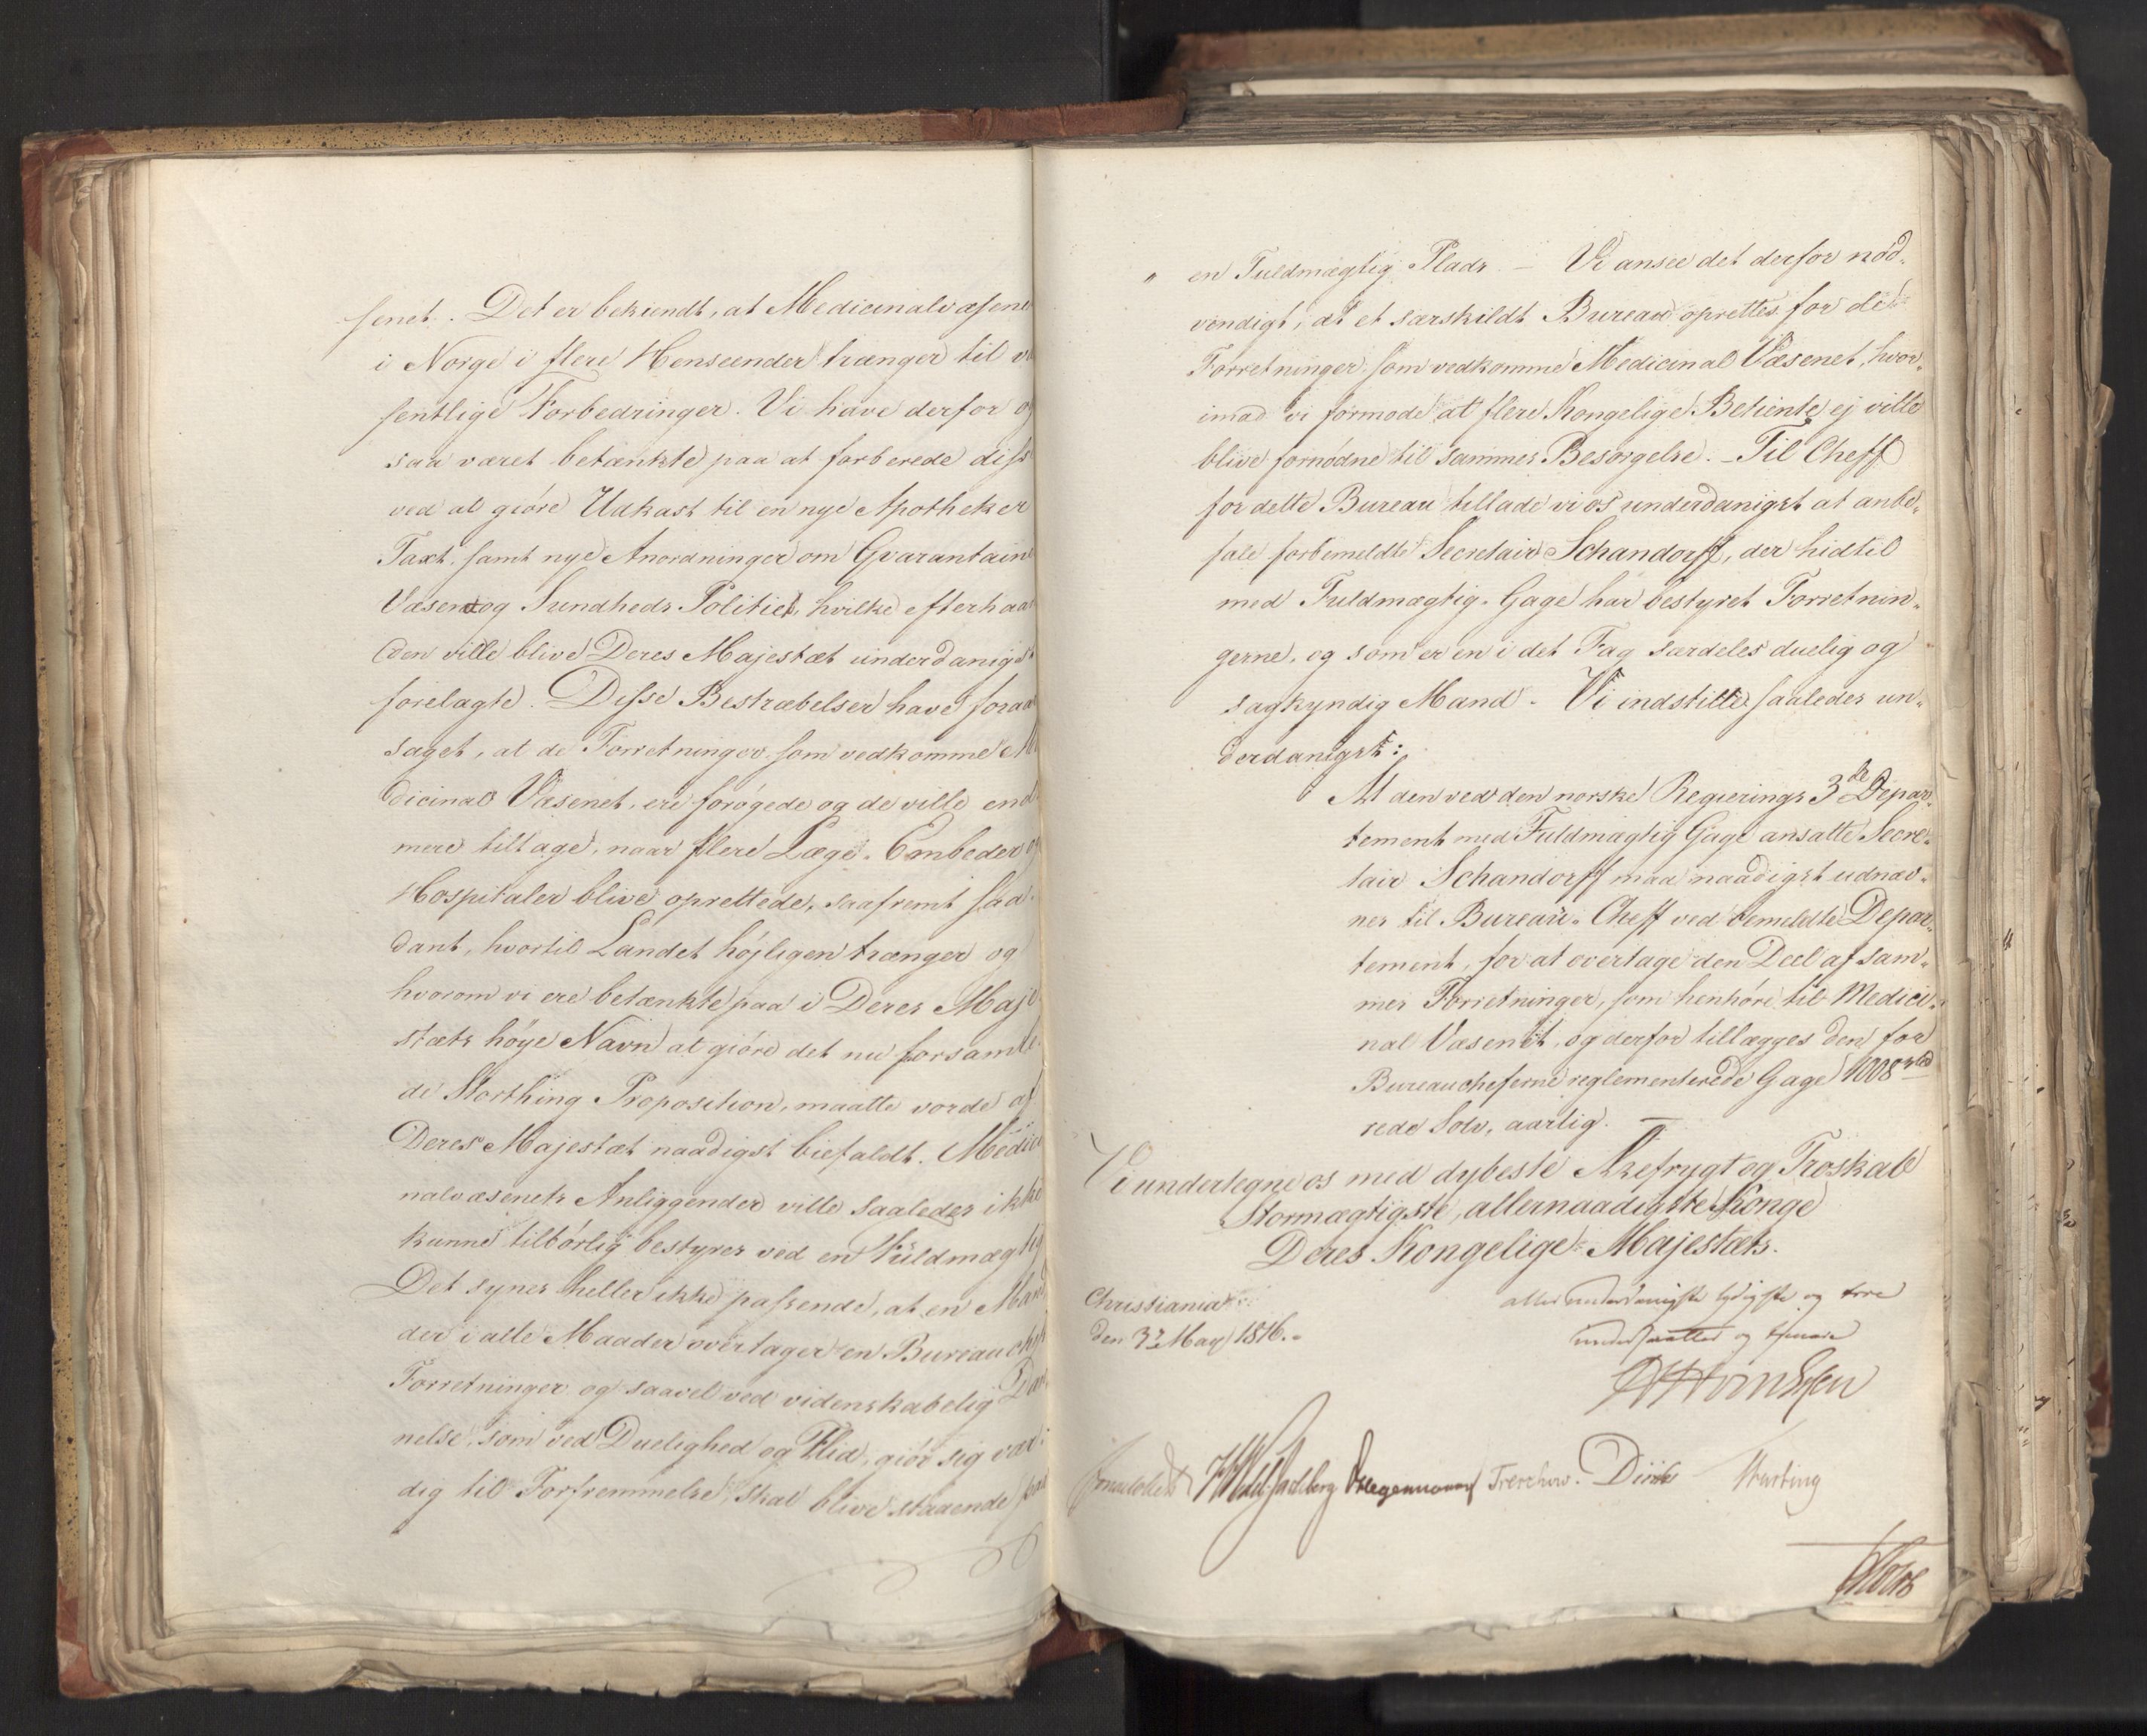 senet. Det er bekiendt, at Medicinalvæsene
i Norge i flere Henseender trænger til væ
sentlige Forbedringer. Vi have derfor og
saa været betænkte paa at forberede disse
ved at giöre Udkast til en nye Apotheker
Taxt, samt nye Anordninger om Qvarantaine
Væsen og Sundheds Politiet, hvilke efterhaan
den ville blive Deres Majestæt underdanigst
forelagte. Disse Bestræbelser have foraar
saget, at de Forretninger som vedkomme Me
dicinal Væsenet, ere forøgede og de ville end
mere tiltage, naar flere Læge-Embeder og
Hospitaler blive oprettede, saafremt saa-
dant, hvortil Landet højligen trænger og
hvorom vi ere betænkte paa i Deres Maje
stæts høye Navn at giöre det nu forsamle
de Storthing Proposition, maatte vorde af
Deres Majestæt naadigst biefaldt. Medici
nalvæsenets Anliggender ville saaledes ikke
kunne tilbørlig bestyres ved en Fuldmægtig
Det synes heller ikke passende, at en Mand
der i alle Maader overtager en Bureauchefs
Forretninger og saavel ved videnskabelig Dan
nelse, som ved Duelighed og Flid, giör sig vær-
dig til Forfremmelse, skal blive staaende paa
" en Fuldmægtig Plads. — Vi ansee det derfor nød-
vendigt, at et særskildt Bureau oprettes for de
Forretninger som vedkomme Medicinal Væsenet, hvor-
imod vi formode at flere Kongelige Betiente ej ville
blive fornødne til sammes Besørgelse. — Til Cheff
for dette Bureau tillade vi os underdanigst at anbe-
fale forbemeldte Secretair Schandorff, der hidtil
med Fuldmægtig-Gage har bestyret Forretnin-
gerne, og som er en i det Fag særdeles duelig og
sagkyndig Mand. Vi indstille saaledes un-
derdanigst:
At den ved den norske Regierings 3de Depar-
tement med Fuldmægtig Gage ansatte Secre-
tair Schandorff maa naadigst udnæv-
nes til Bureau-Cheff ved bemeldte Depar-
tement, for at overtage den Deel af sam-
mes Forretninger, som henhøre til Medici-
nal Væsenet, og derfor tillægges den for
Bureaucheferne reglementerede Gage 1008 rbd
rede Sølv, aarlig. —
Vi undertegne os med dybeste Ærefrygt og Troskab
Stormægtigste, allernaadigste Konge
Deres Kongelige Majestæts.
Christiania
den 3e May 1816.
allerunderdanigste lydigste og troe
undersaatter og tjenere
Sommerhielm Wedel Jarlsberg Diderich Hegermann Treschow. Diriks Motzfeldt